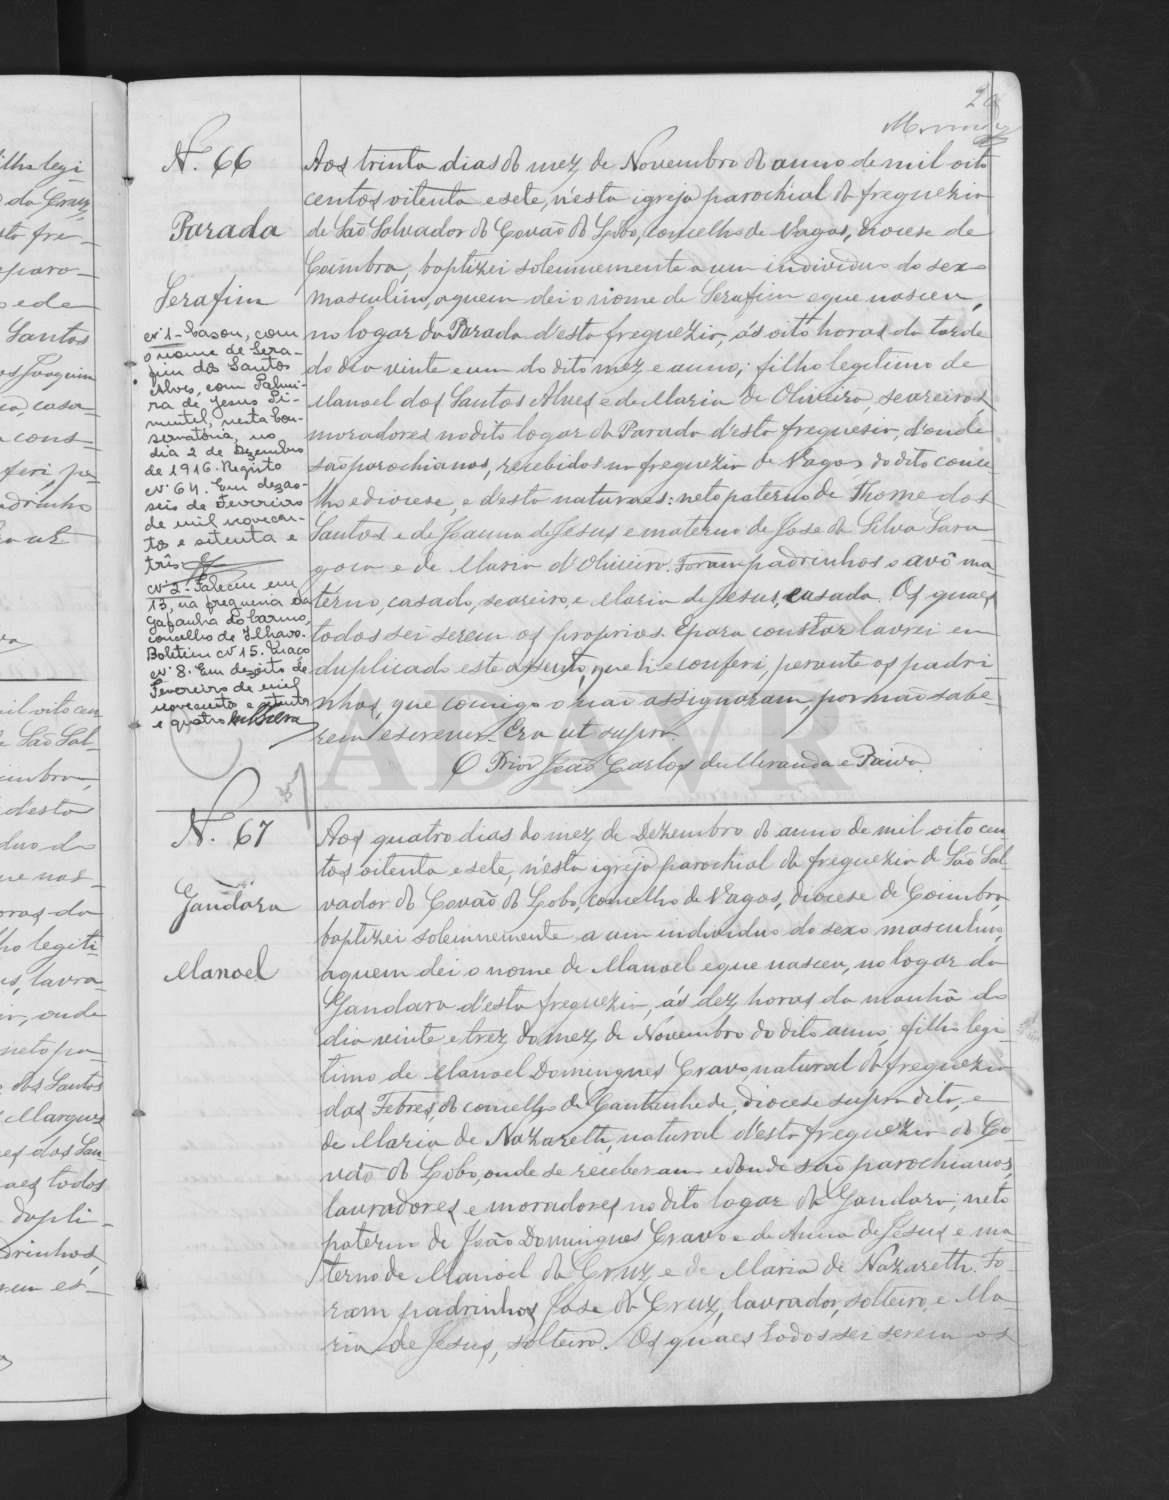 N. 66
Parada
Serafim
Nº 1 - Casou, com
o nome de Sera-
fim dos Santos
Alves, com Palmi-
ra de Jesus Pi-
mentel, nesta Con-
servatória, no
dia 2 de Dezembro
de 1916. Registo
nº 64. Em dezas-
seis de Fevereiro
de mil novecen-
tos e setenta e
três.
Nº 2 - Faleceu em
13, na freguesia da
Gafanha do Carmo,
concelho de Ílhavo.
Boletim nº 15. Maço
nº 8. Em dezoito de
Fevereiro de mil
novecentos e setenta
e quatro
Aos trinta dias do mez de Novembro do anno de mil oito
centos oitenta e sete, n'esta igreja parochial da freguezia
de São Salvador do Covão do Lobo, concelho de Vagos, diocese de
Coimbra, baptizei solemnemente a um individuo do sexo
masculino, a quem dei o nome de Serafim e que nasceu,
no logar da Parada d'esta freguezia, ás oito horas da tarde
do dia vinte e um do dito mez e anno; filho legitimo de
Manoel dos Santos Alves e de Maria de Oliveira, seareiros
moradores no dito logar da Parada d'esta freguesia, d'onde
são parochianos, recebidos na freguezia de Vagos do dito conce
lho e diocese, e d'esta naturaes: neto paterno de Thome dos
Santos e de Joanna de Jesus e materno de Jose da Silva Sara
goça e de Maria d'Oliveira. Foram padrinhos o avô ma-
terno, casado, seareiro, e Maria de Jesus, casada. Os quaes
todos sei serem os proprios. E para constar lavrei em
duplicado este assento, que li e conferi, perante os padri
nhos, que comigo o não assignaram, por não sabe-
rem escrever. Era ut supra.
O Prior João Carlos de Miranda e Paiva
N. 67
Gandara
Manoel
Aos quatro dias do mez de Dezembro do anno de mil oito cen-
tos oitenta e sete, n'esta igreja parochial da freguezia de São Sal-
vador do Covão do Lobo, concelho de Vagos, diocese de Coimbra,
baptizei solemnemente a um individuo do sexo masculino,
a quem dei o nome de Manoel e que nasceu, no logar da
Gandara d'esta freguezia, ás dez horas da manhã do
dia vinte e trez do mez de Novembro do dito anno; filho legi-
timo de Manoel Domingues Cravo, natural da freguezia
das Febres, do concelho de Cantanhede, diocese supra dita, e
de Maria de Nazareth, natural d'esta freguezia do Co-
vão do Lobo, onde se receberam e d'onde são parochianos,
lavradores e moradores no dito logar da Gandara; neto
paterno de João Domingues Cravo e de Anna de Jesus e ma
terno de Manoel da Cruz e de Maria de Nazareth. Fo-
ram padrinhos Jose da Cruz, lavrador, solteiro, e Ma-
ria de Jesus, solteira. Os quaes todos sei serem os
ADAVR